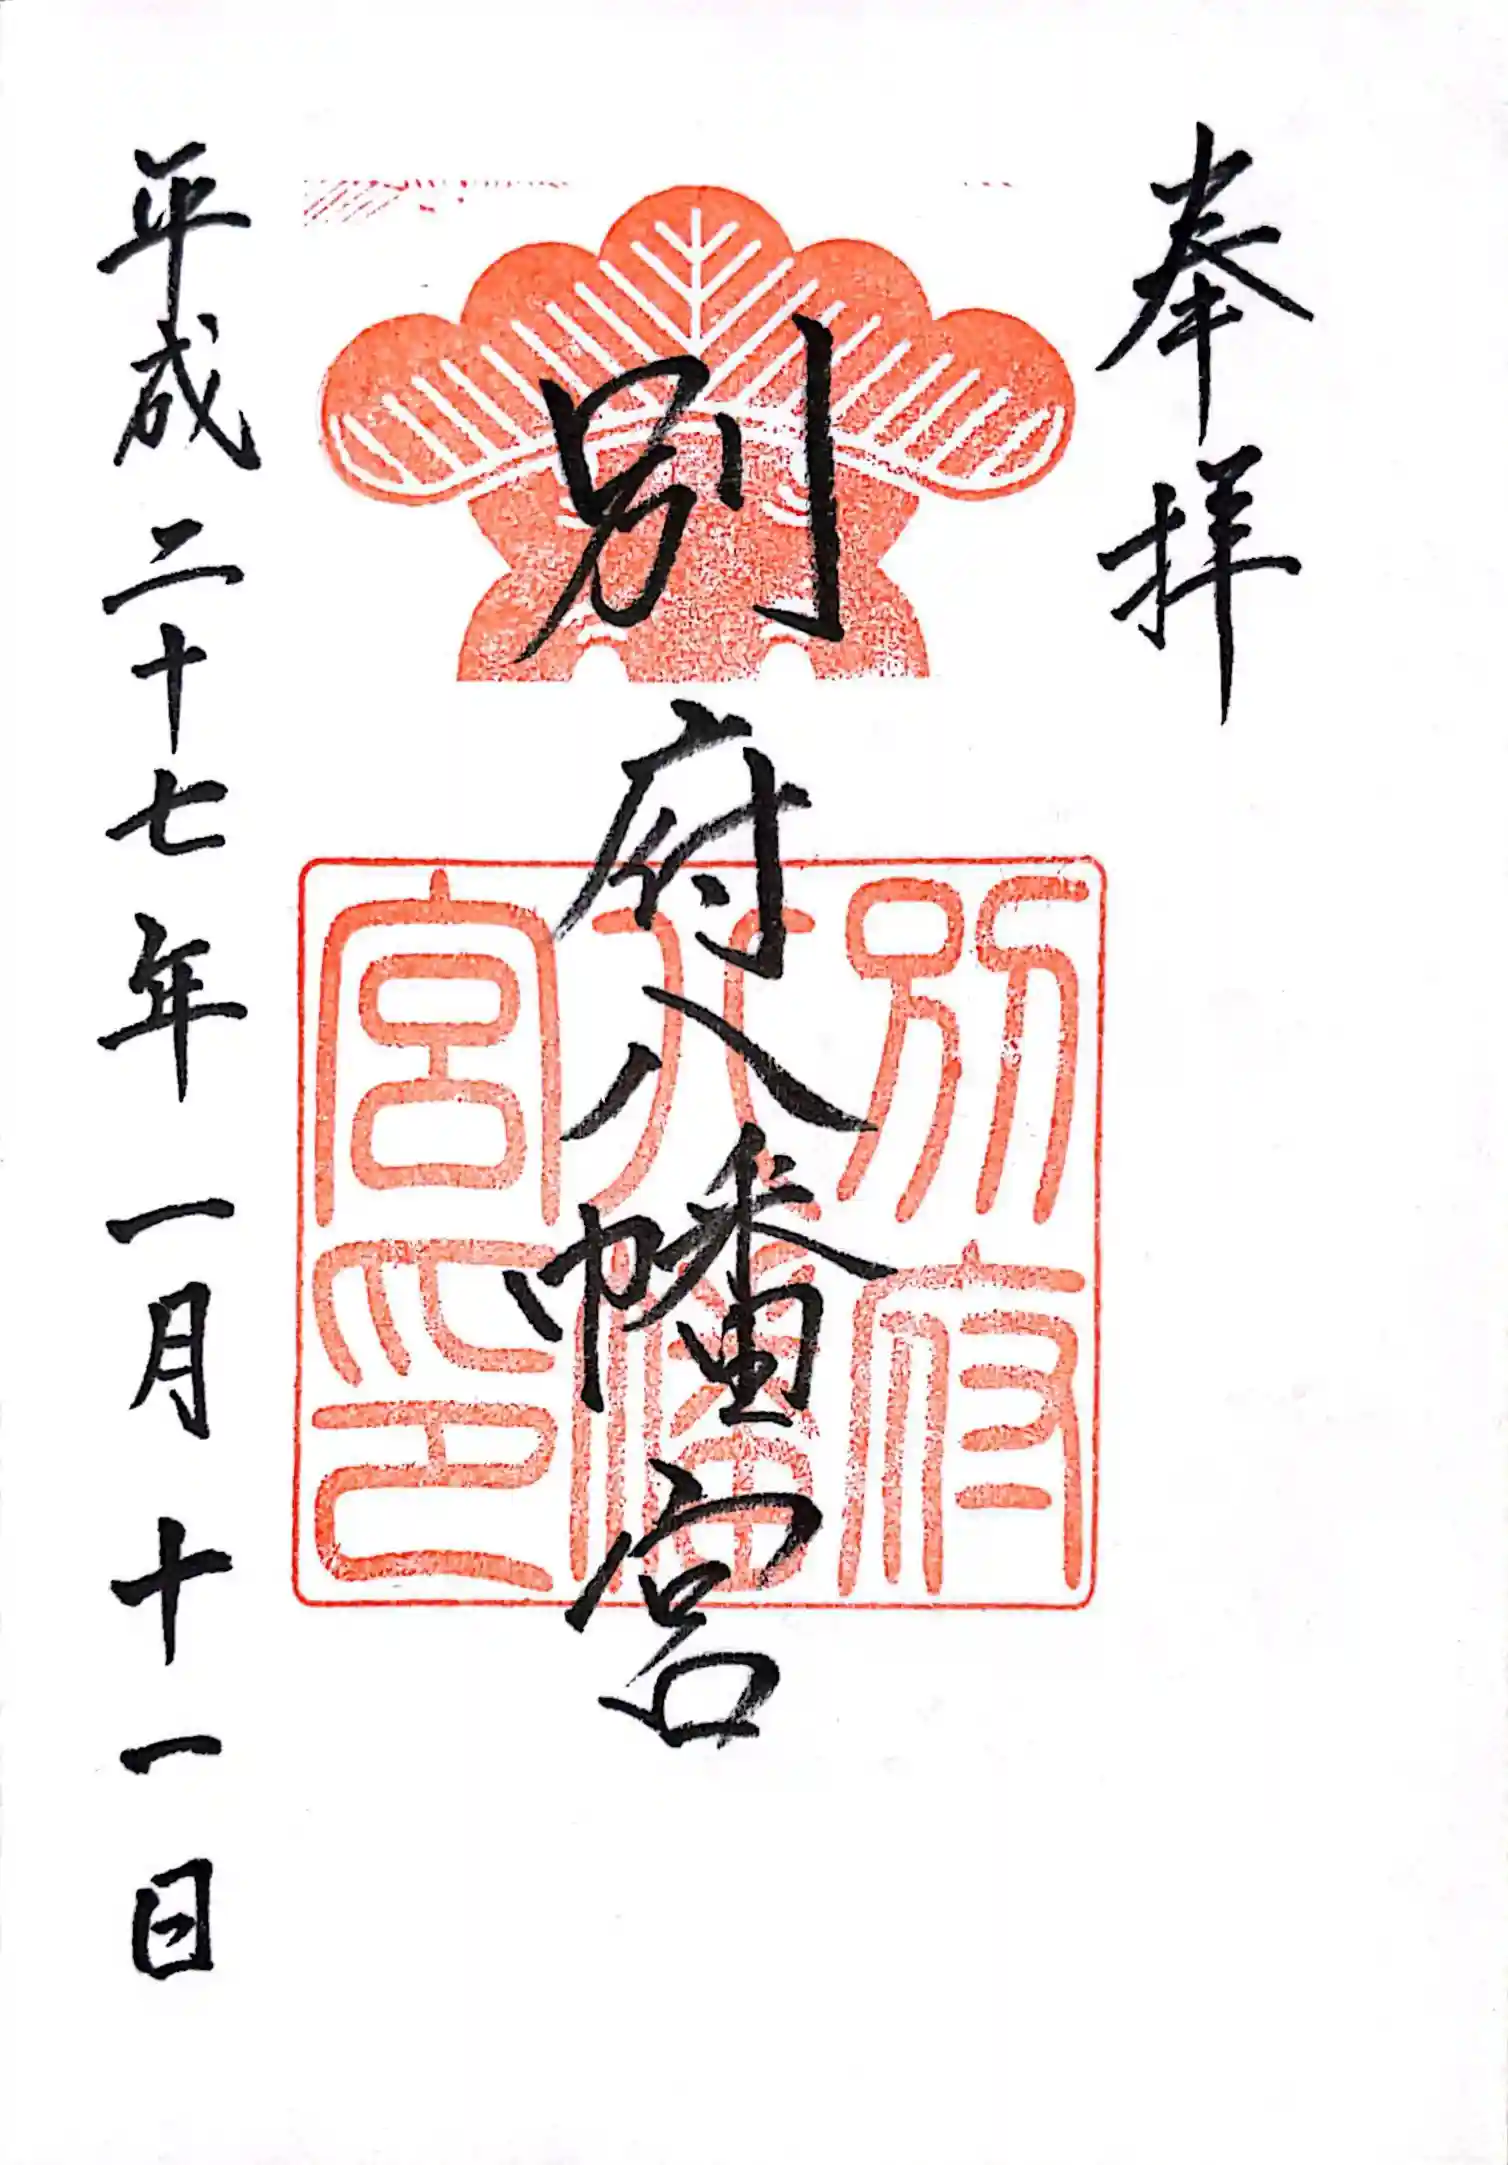 奉拝
別府八幡宮
別府
八幡
宮印
平成二十七年一月十一日